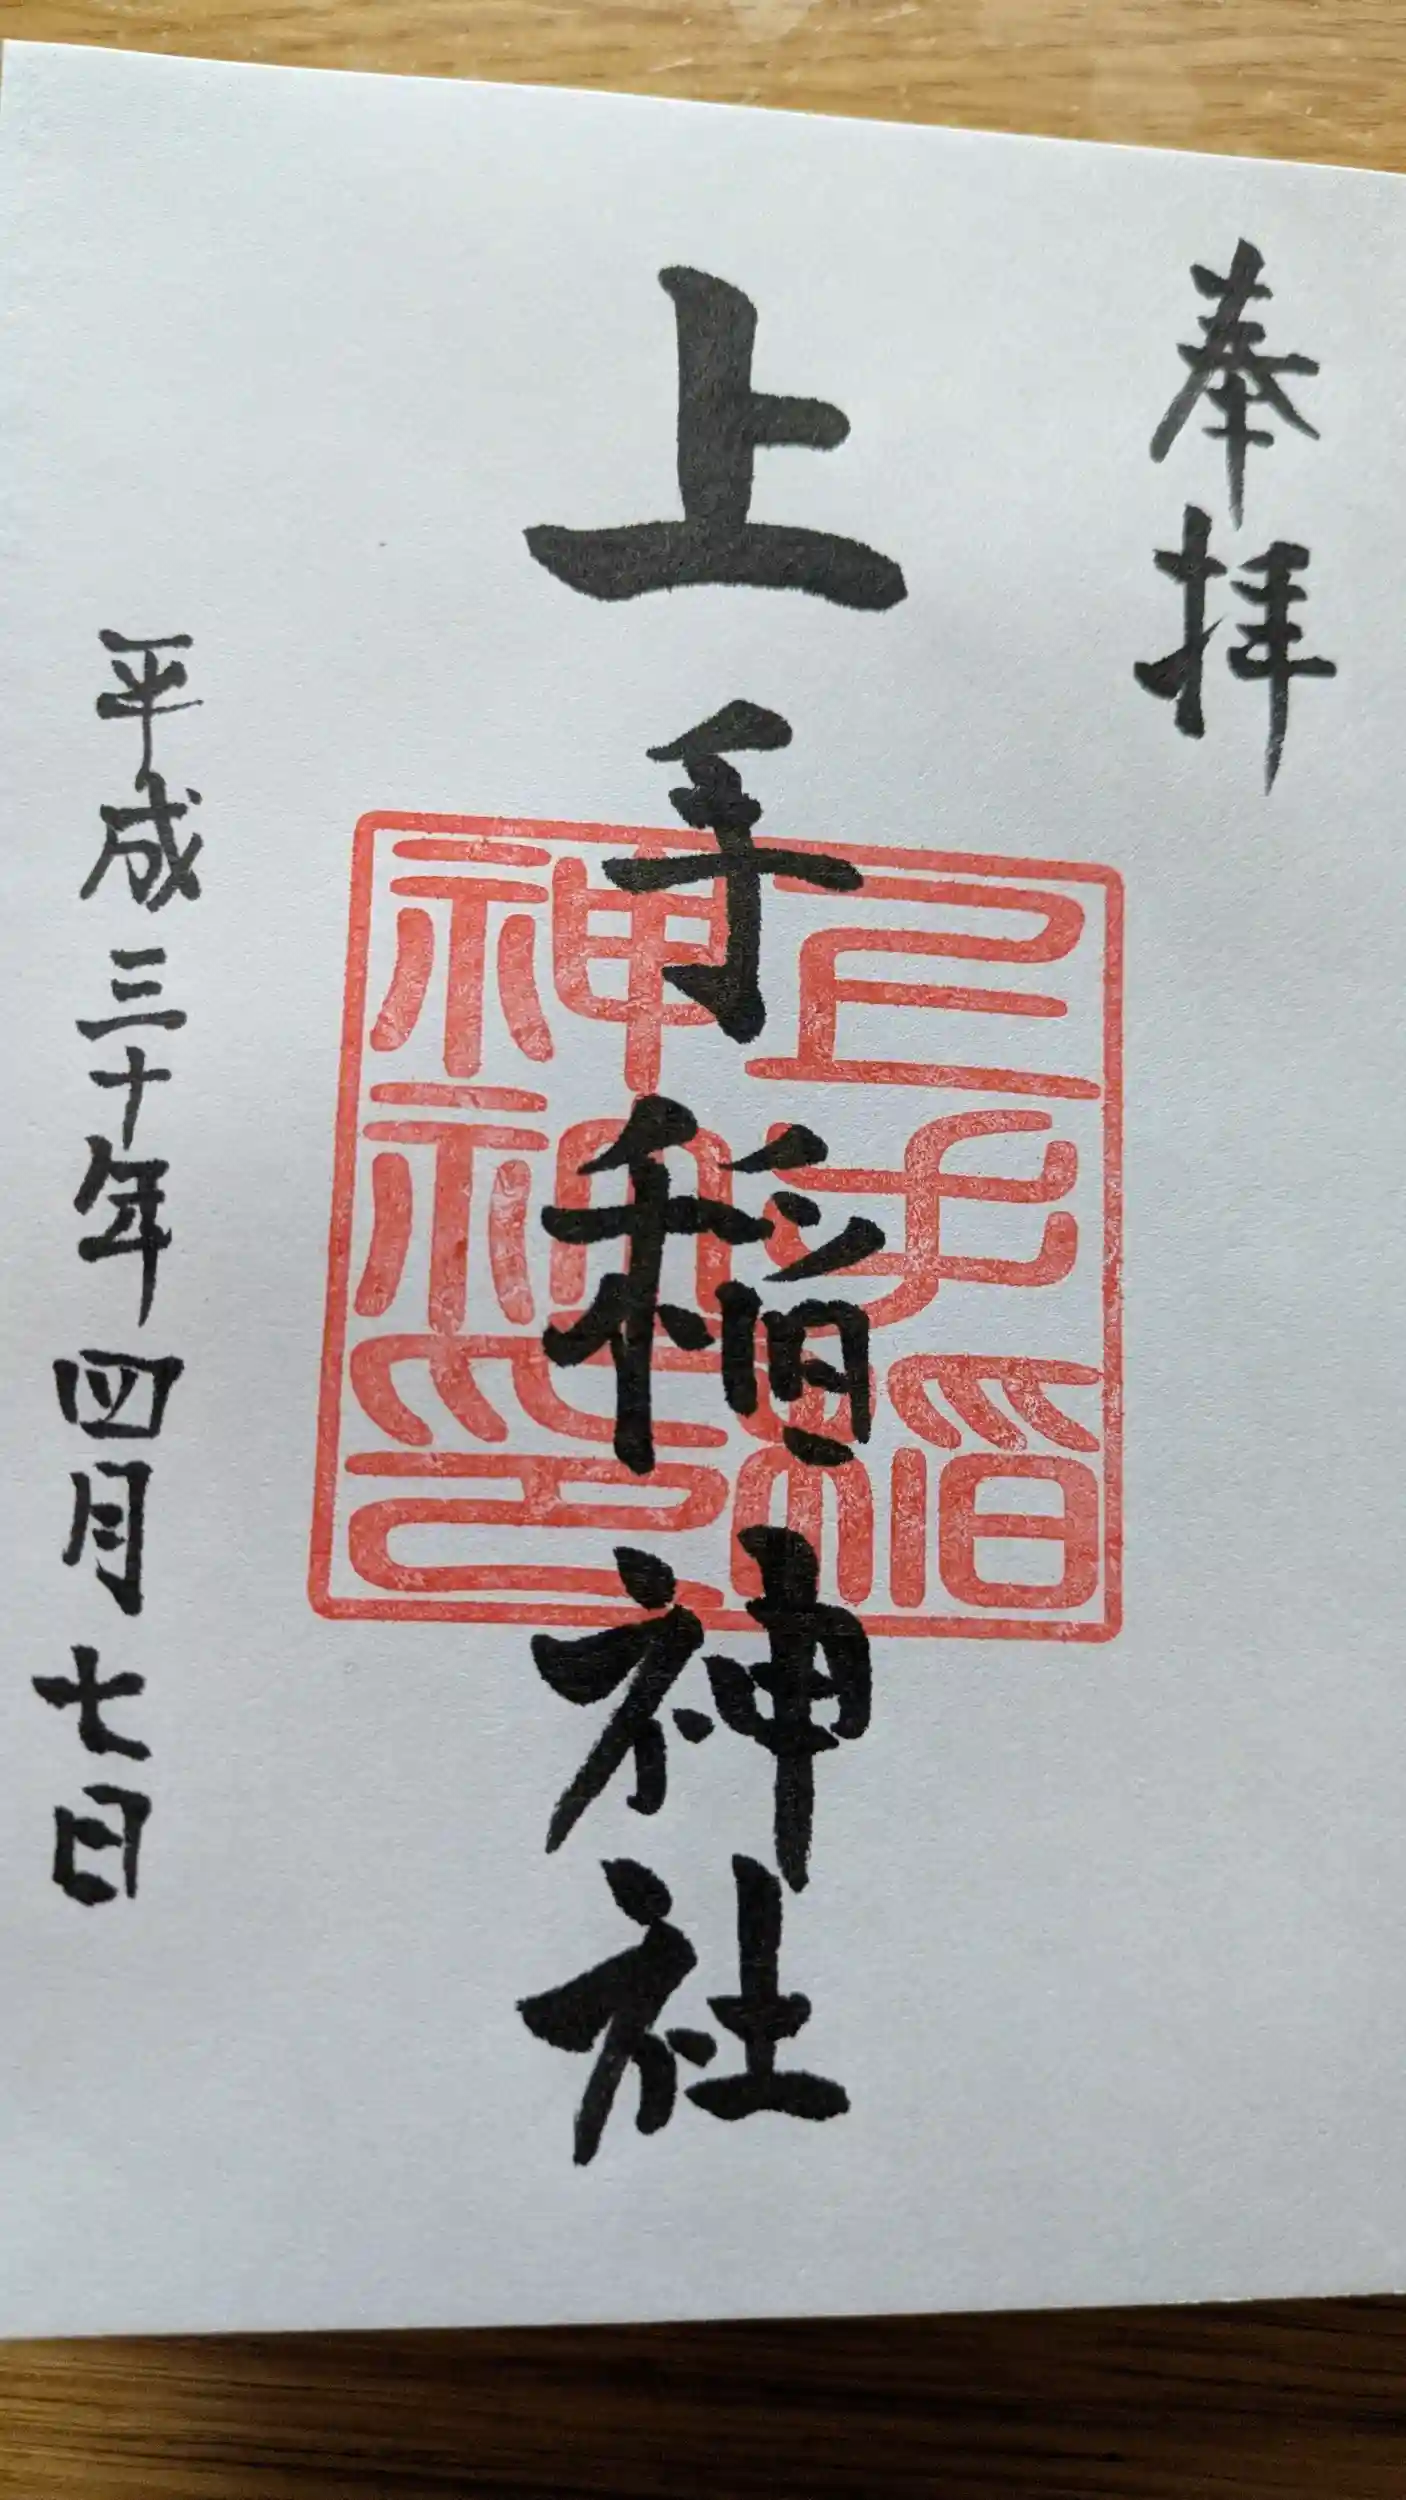 奉拝
上手稲神社
上手稲
神社印
平成三十年四月七日